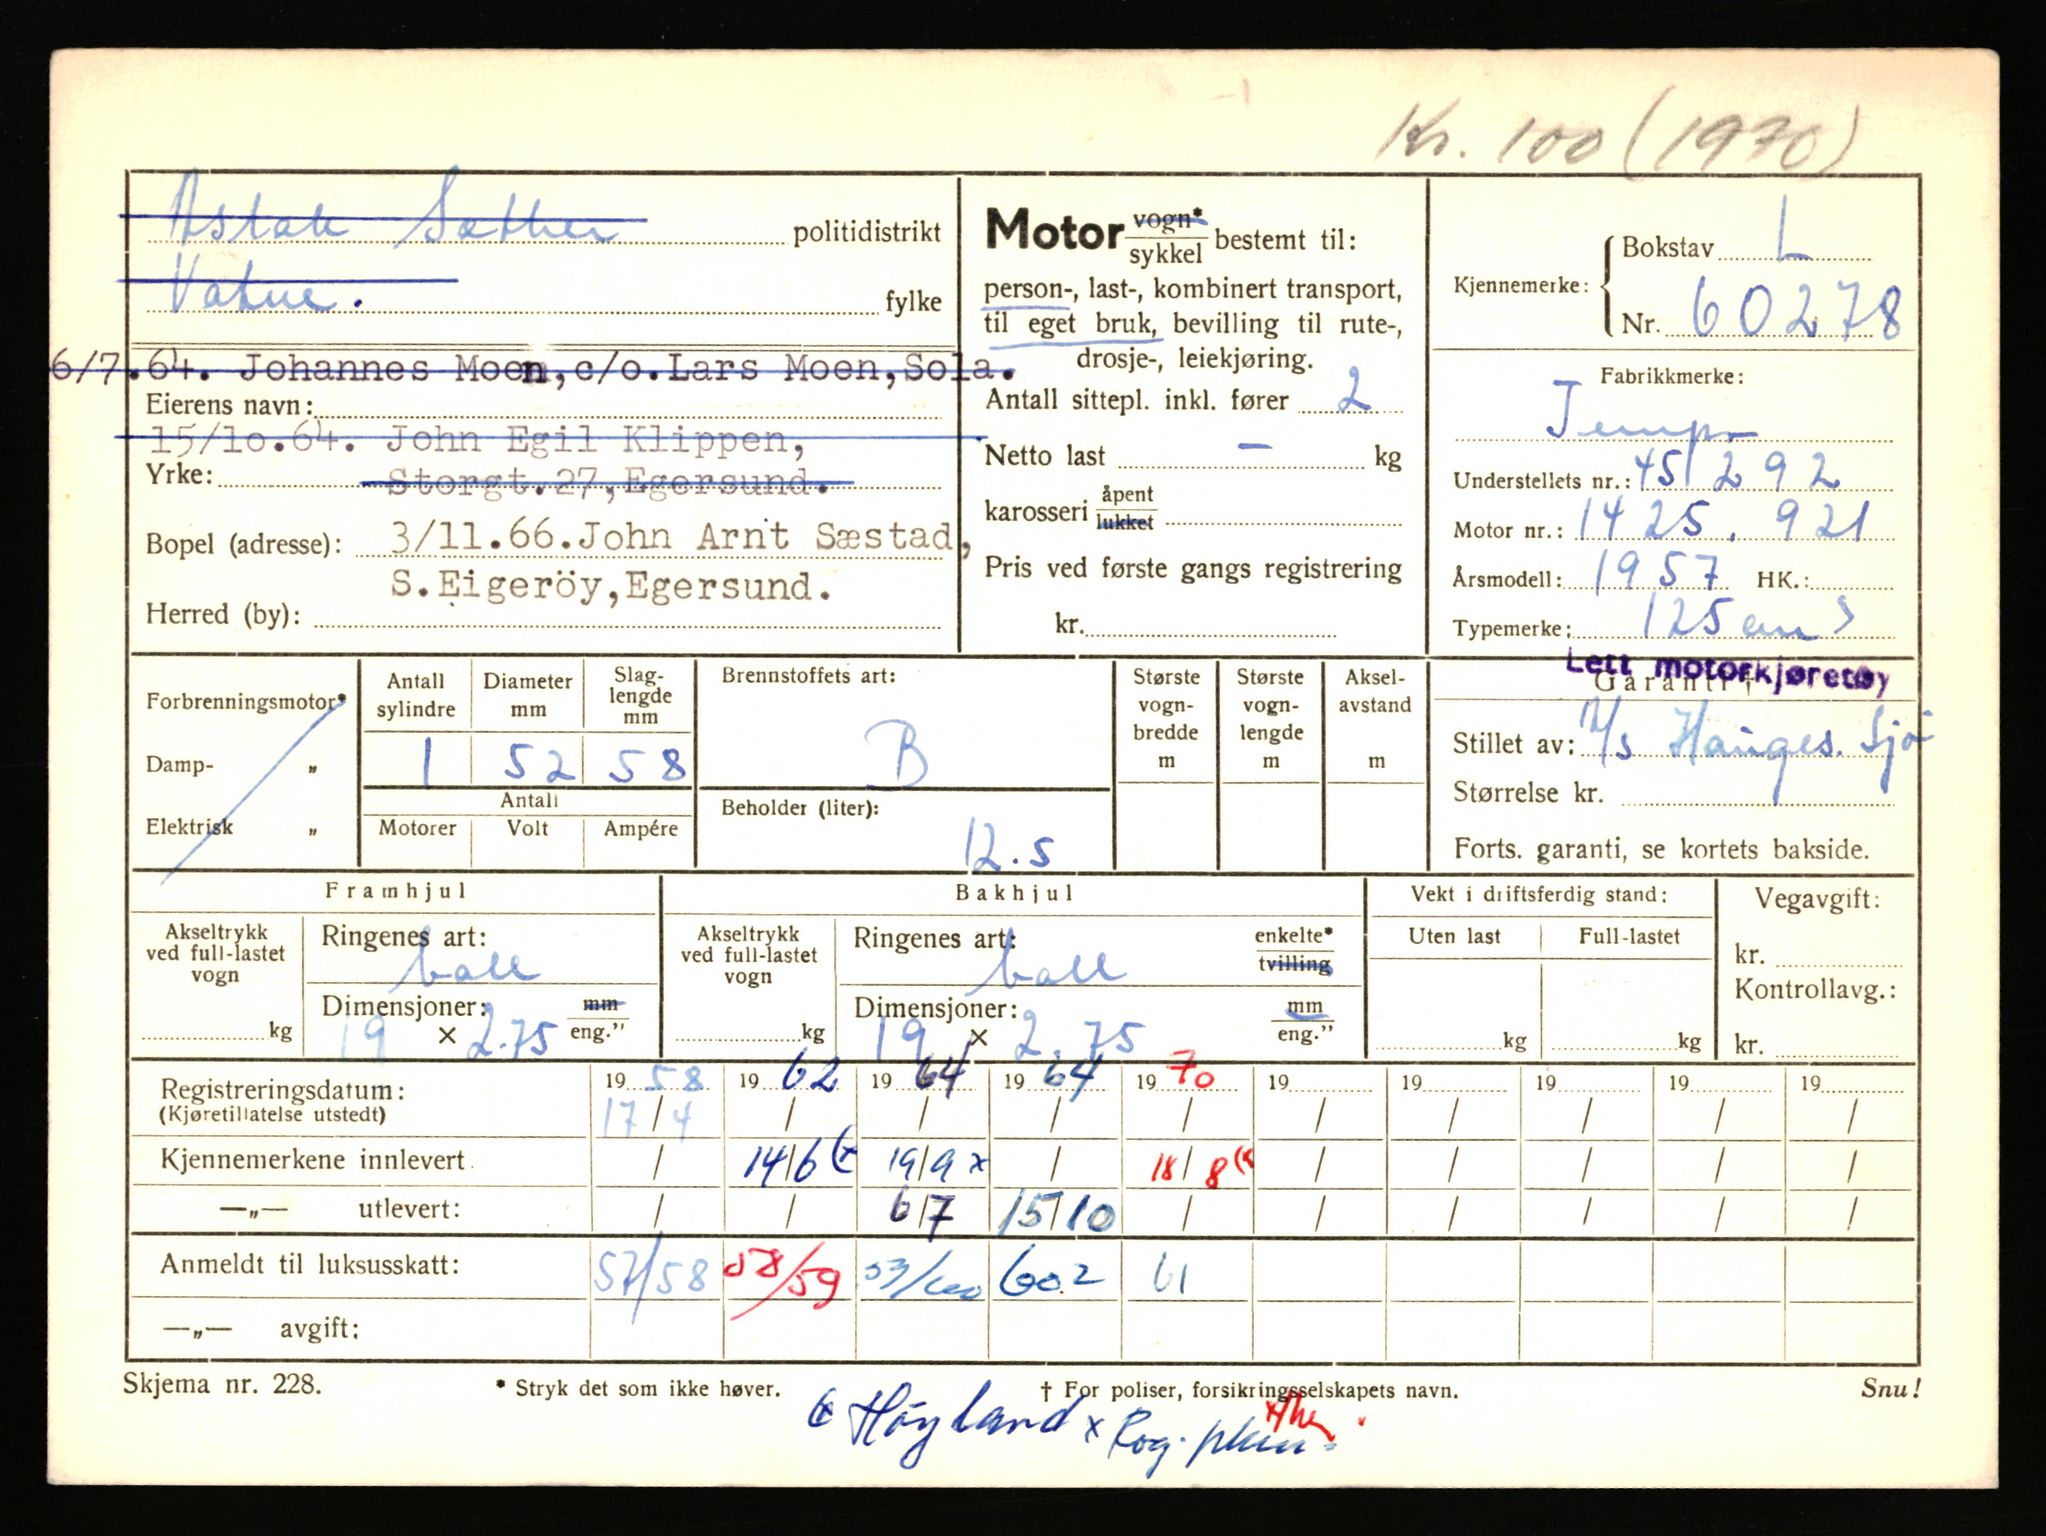 Kr. 100 (1970)
Astak Sæther politidistrikt
Vatne. fylke
6/7.64. Johannes Moen,c/o.Lars Moen,Sola.
Eierens navn:
15/10.64. John Egil Klippen,
Yrke: Storgt.27,Egersund.
Bopel (adresse): 3/11.66.John Arnt Sæstad,
S.Eigeröy,Egersund.
Herred (by):
Motor vogn* sykkel bestemt til:
person-, last-, kombinert transport,
til eget bruk, bevilling til rute-,
drosje-, leiekjøring.
Antall sittepl. inkl. fører 2
Netto last – kg
karosseri åpent lukket
Pris ved første gangs registrering
kr.
Kjennemerke: Bokstav L
Nr. 60278
Fabrikkmerke:
Tempo
Understellets nr.: 451292
Motor nr.: 1425.921
Årsmodell: 1957 HK.:
Typemerke: 125 cm3
Lett motorkjøretøy
Garanti†
Stillet av: A/s Hauges. Sjø
Størrelse kr.
Forts. garanti, se kortets bakside.
Forbrenningsmotor*
Damp- „
Elektrisk „
Antall sylindre Diameter mm Slag-lengde mm
1 52 58
Antall
Motorer Volt Ampére
Brennstoffets art:
B
Beholder (liter):
12.5
Største vogn-bredde m
Største vogn-lengde m
Aksel-avstand m
Framhjul
Akseltrykk ved full-lastet vogn kg
Ringenes art: ball
Dimensjoner: mm
19 × 2.75 eng.”
Bakhjul
Akseltrykk ved full-lastet vogn kg
Ringenes art: ball enkelte* tvilling
Dimensjoner: mm
19 × 2.75 eng.”
Vekt i driftsferdig stand:
Uten last Full-lastet
kg kg
Vegavgift:
kr.
Kontrollavg.:
kr.
Registreringsdatum: 19 58 19 62 19 64 19 64 19 70 19 19 19 19 19
(Kjøretillatelse utstedt) 17/4 / / / / / / / / /
Kjennemerkene innlevert / 14/6 (x 19/9 x / 18/8 (x / / / / /
—„— utlevert: / / 6/7 15/10 / / / / / /
Anmeldt til luksusskatt: 57/58 58/59 602 61
—„— avgift:
Skjema nr. 228. * Stryk det som ikke høver. † For poliser, forsikringsselskapets navn. Snu!
Høyland x Rog.